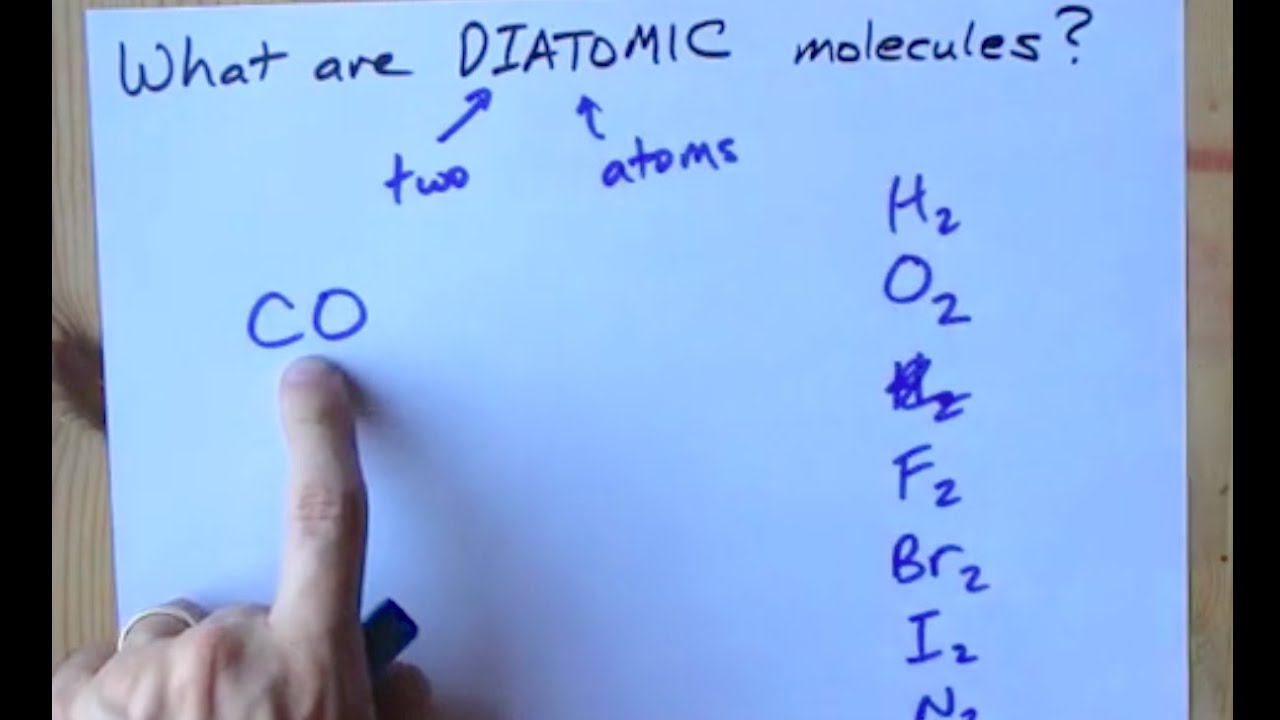 What are DIATOMIC molecules?
two atoms
H₂
O₂
CO
₂
F₂
Br₂
I₂
N₂